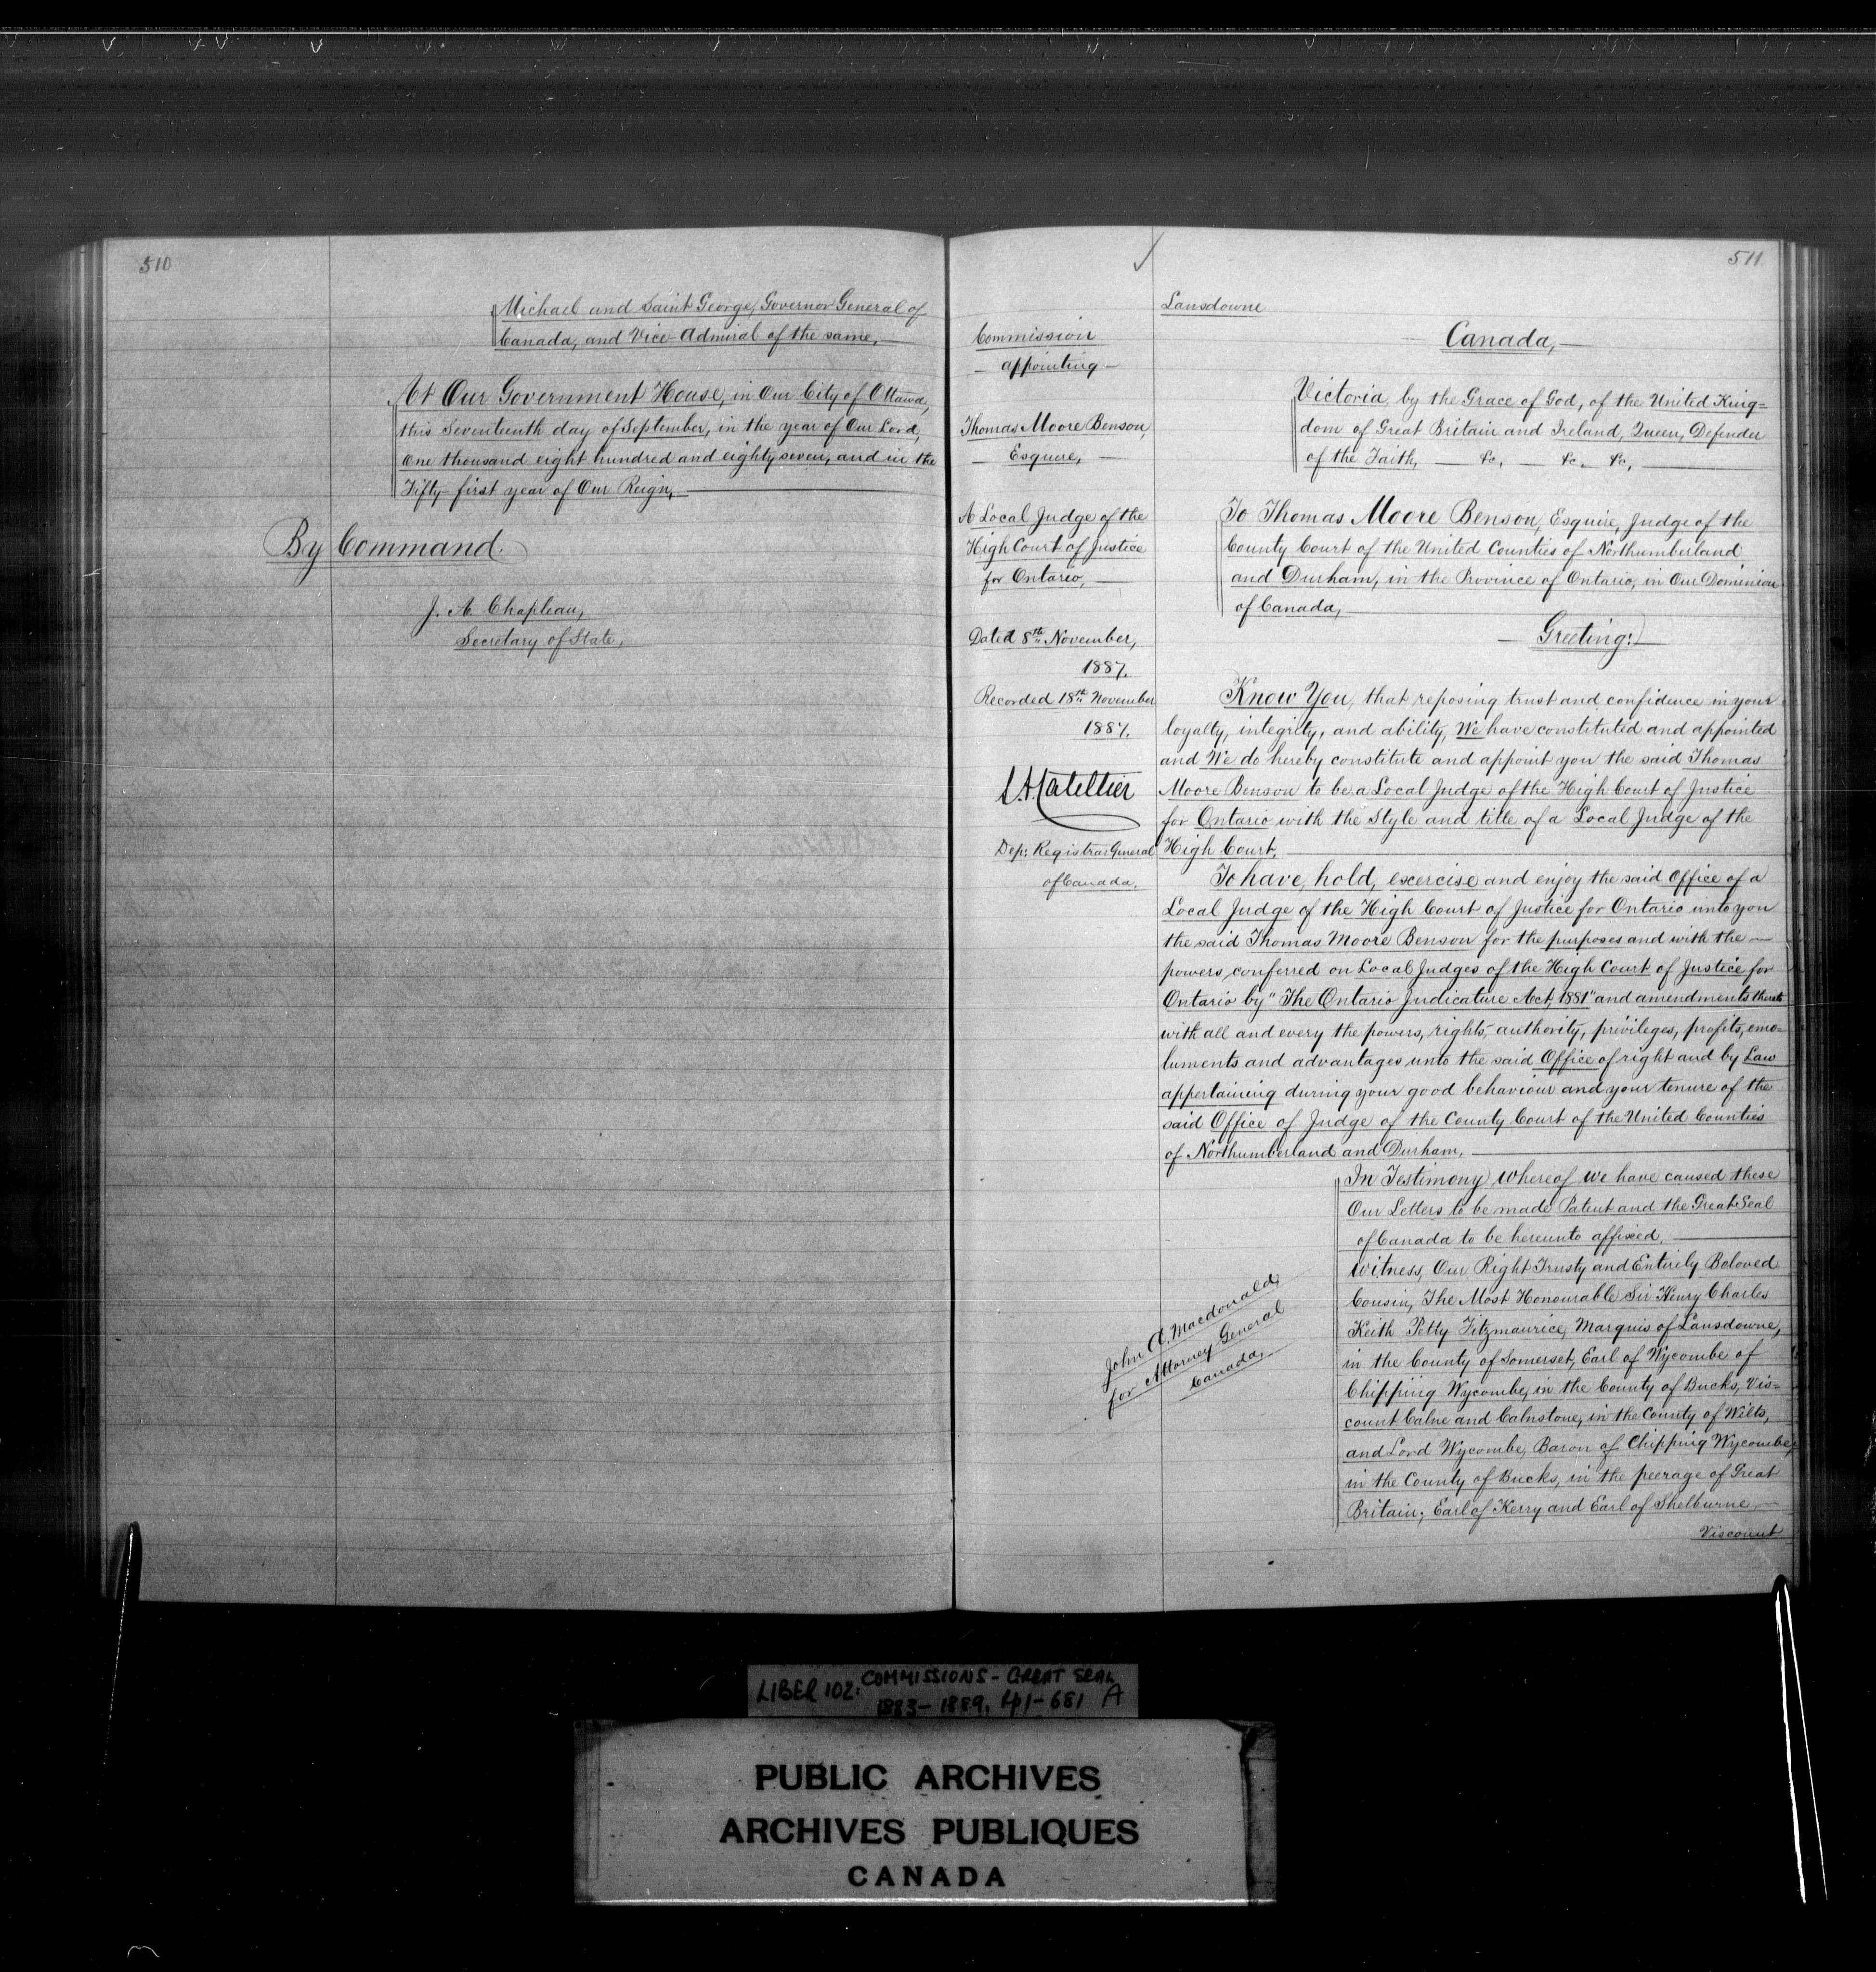 510
Michael and Saint George, Governor General of
Canada, and Vice-Admiral of the same,
At Our Government House, in Our City of Ottawa,
this Seventeenth day of September, in the year of Our Lord,
One thousand eight hundred and eighty seven, and in the
Fifty-first year of Our Reign,
By Command.
J. A. Chapleau,
Secretary of State,
511
Lansdowne
Commission
appointing
Thomas Moore Benson,
Esquire,
A Local Judge of the
High Court of Justice
for Ontario,
Dated 8th November,
1887.
Recorded 18th November
1887.
L.A. Catellier
Dep: Registrar General
of Canada.
Canada,
Victoria, by the Grace of God, of the United King=
dom of Great Britain and Ireland, Queen, Defender
of the Faith, — &c, — &c. — &c,
To Thomas Moore Benson, Esquire, Judge of the
County Court of the United Counties of Northumberland
and Durham, in the Province of Ontario, in Our Dominion
of Canada,
Greeting:
Know You, that reposing trust and confidence in your
loyalty, integrity, and ability, We have constituted and appointed
and We do hereby constitute and appoint you the said Thomas
Moore Benson to be a Local Judge of the High Court of Justice
for Ontario with the Style and title of a Local Judge of the
High Court.
To have, hold, excercise and enjoy the said Office of a
Local Judge of the High Court of Justice for Ontario unto you
the said Thomas Moore Benson for the purposes and with the —
powers conferred on Local Judges of the High Court of Justice for
Ontario by "The Ontario Judicature Act, 1881" and amendments thereto
with all and every the powers, rights, authority, privileges, profits, emo=
luments and advantages unto the said Office of right and by Law
appertaining during your good behaviour and your tenure of the
said Office of Judge of the County Court of the United Counties
of Northumberland and Durham,
In Testimony Whereof We have caused these
Our Letters to be made Patent and the Great Seal
of Canada to be hereunto affixed.
Witness, Our Right Trusty and Entirely Beloved
Cousin, The Most Honourable Sir Henry Charles
Keith Petty Fitzmaurice, Marquis of Lansdowne,
in the County of Somerset, Earl of Wycombe of
Chipping Wycombe, in the County of Bucks, Vis=
count Calne and Calnstone, in the County of Wilts,
and Lord Wycombe, Baron of Chipping Wycombe,
in the County of Bucks, in the peerage of Great
Britain; Earl of Kerry and Earl of Shelburne
Viscount
John A. Macdonald,
for Attorney General
Canada,
LIBER 102: COMMISSIONS - GREAT SEAL
1883-1889, pp1-681 A
PUBLIC ARCHIVES
ARCHIVES PUBLIQUES
CANADA